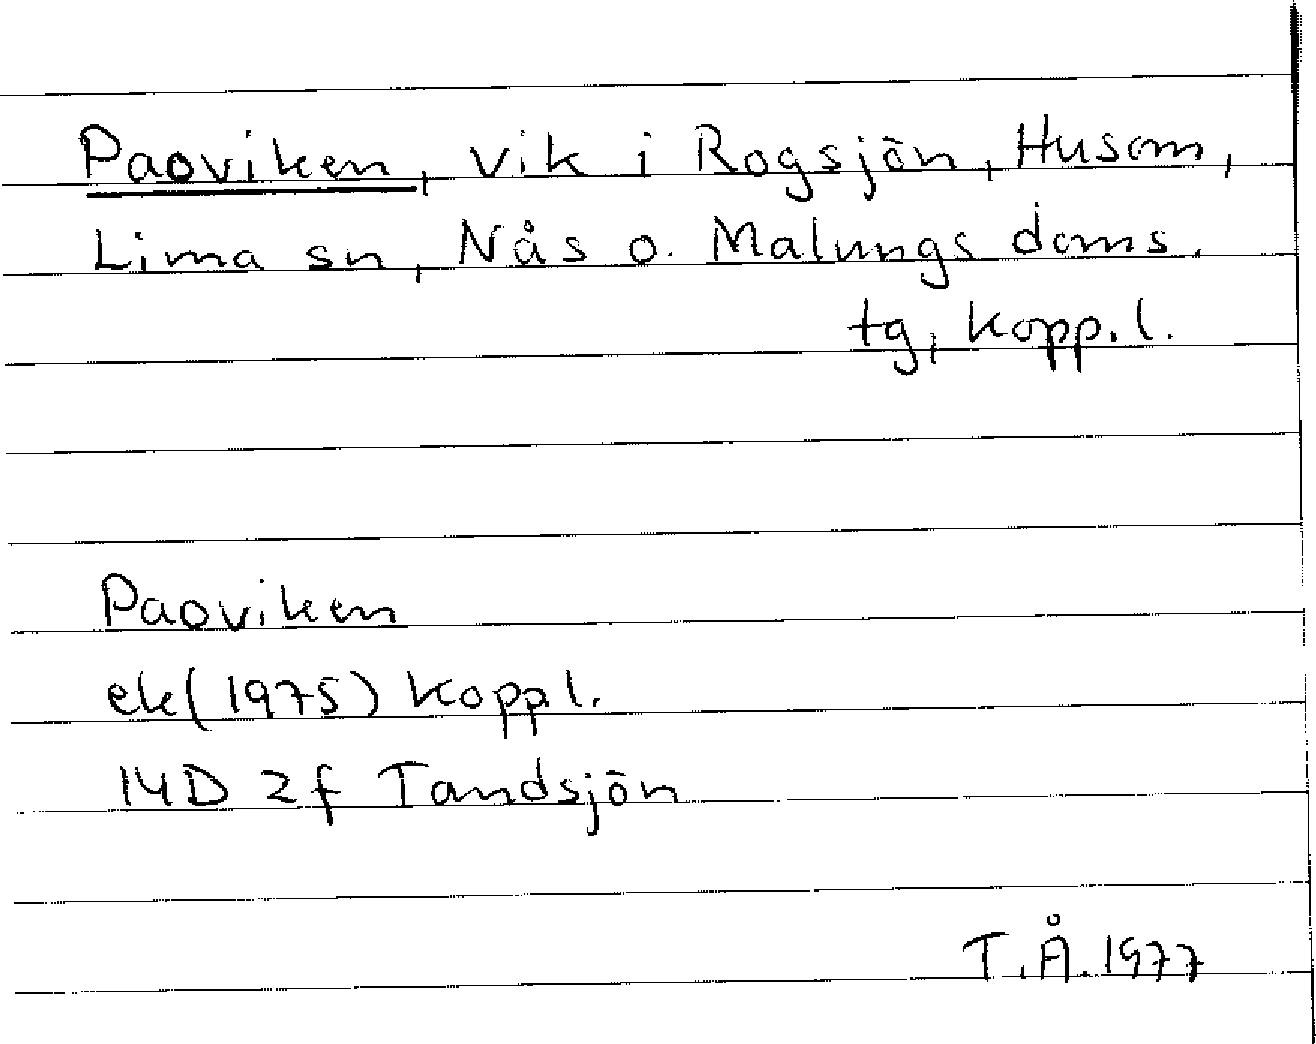 Paoviken, vik i Rogsjön, Husom,
Lima sn, Nås o. Malungs doms.
tg, Kopp.l.
Paoviken
ek(1975) Koppl.
14D 2f Tandsjön
T.Å.1977